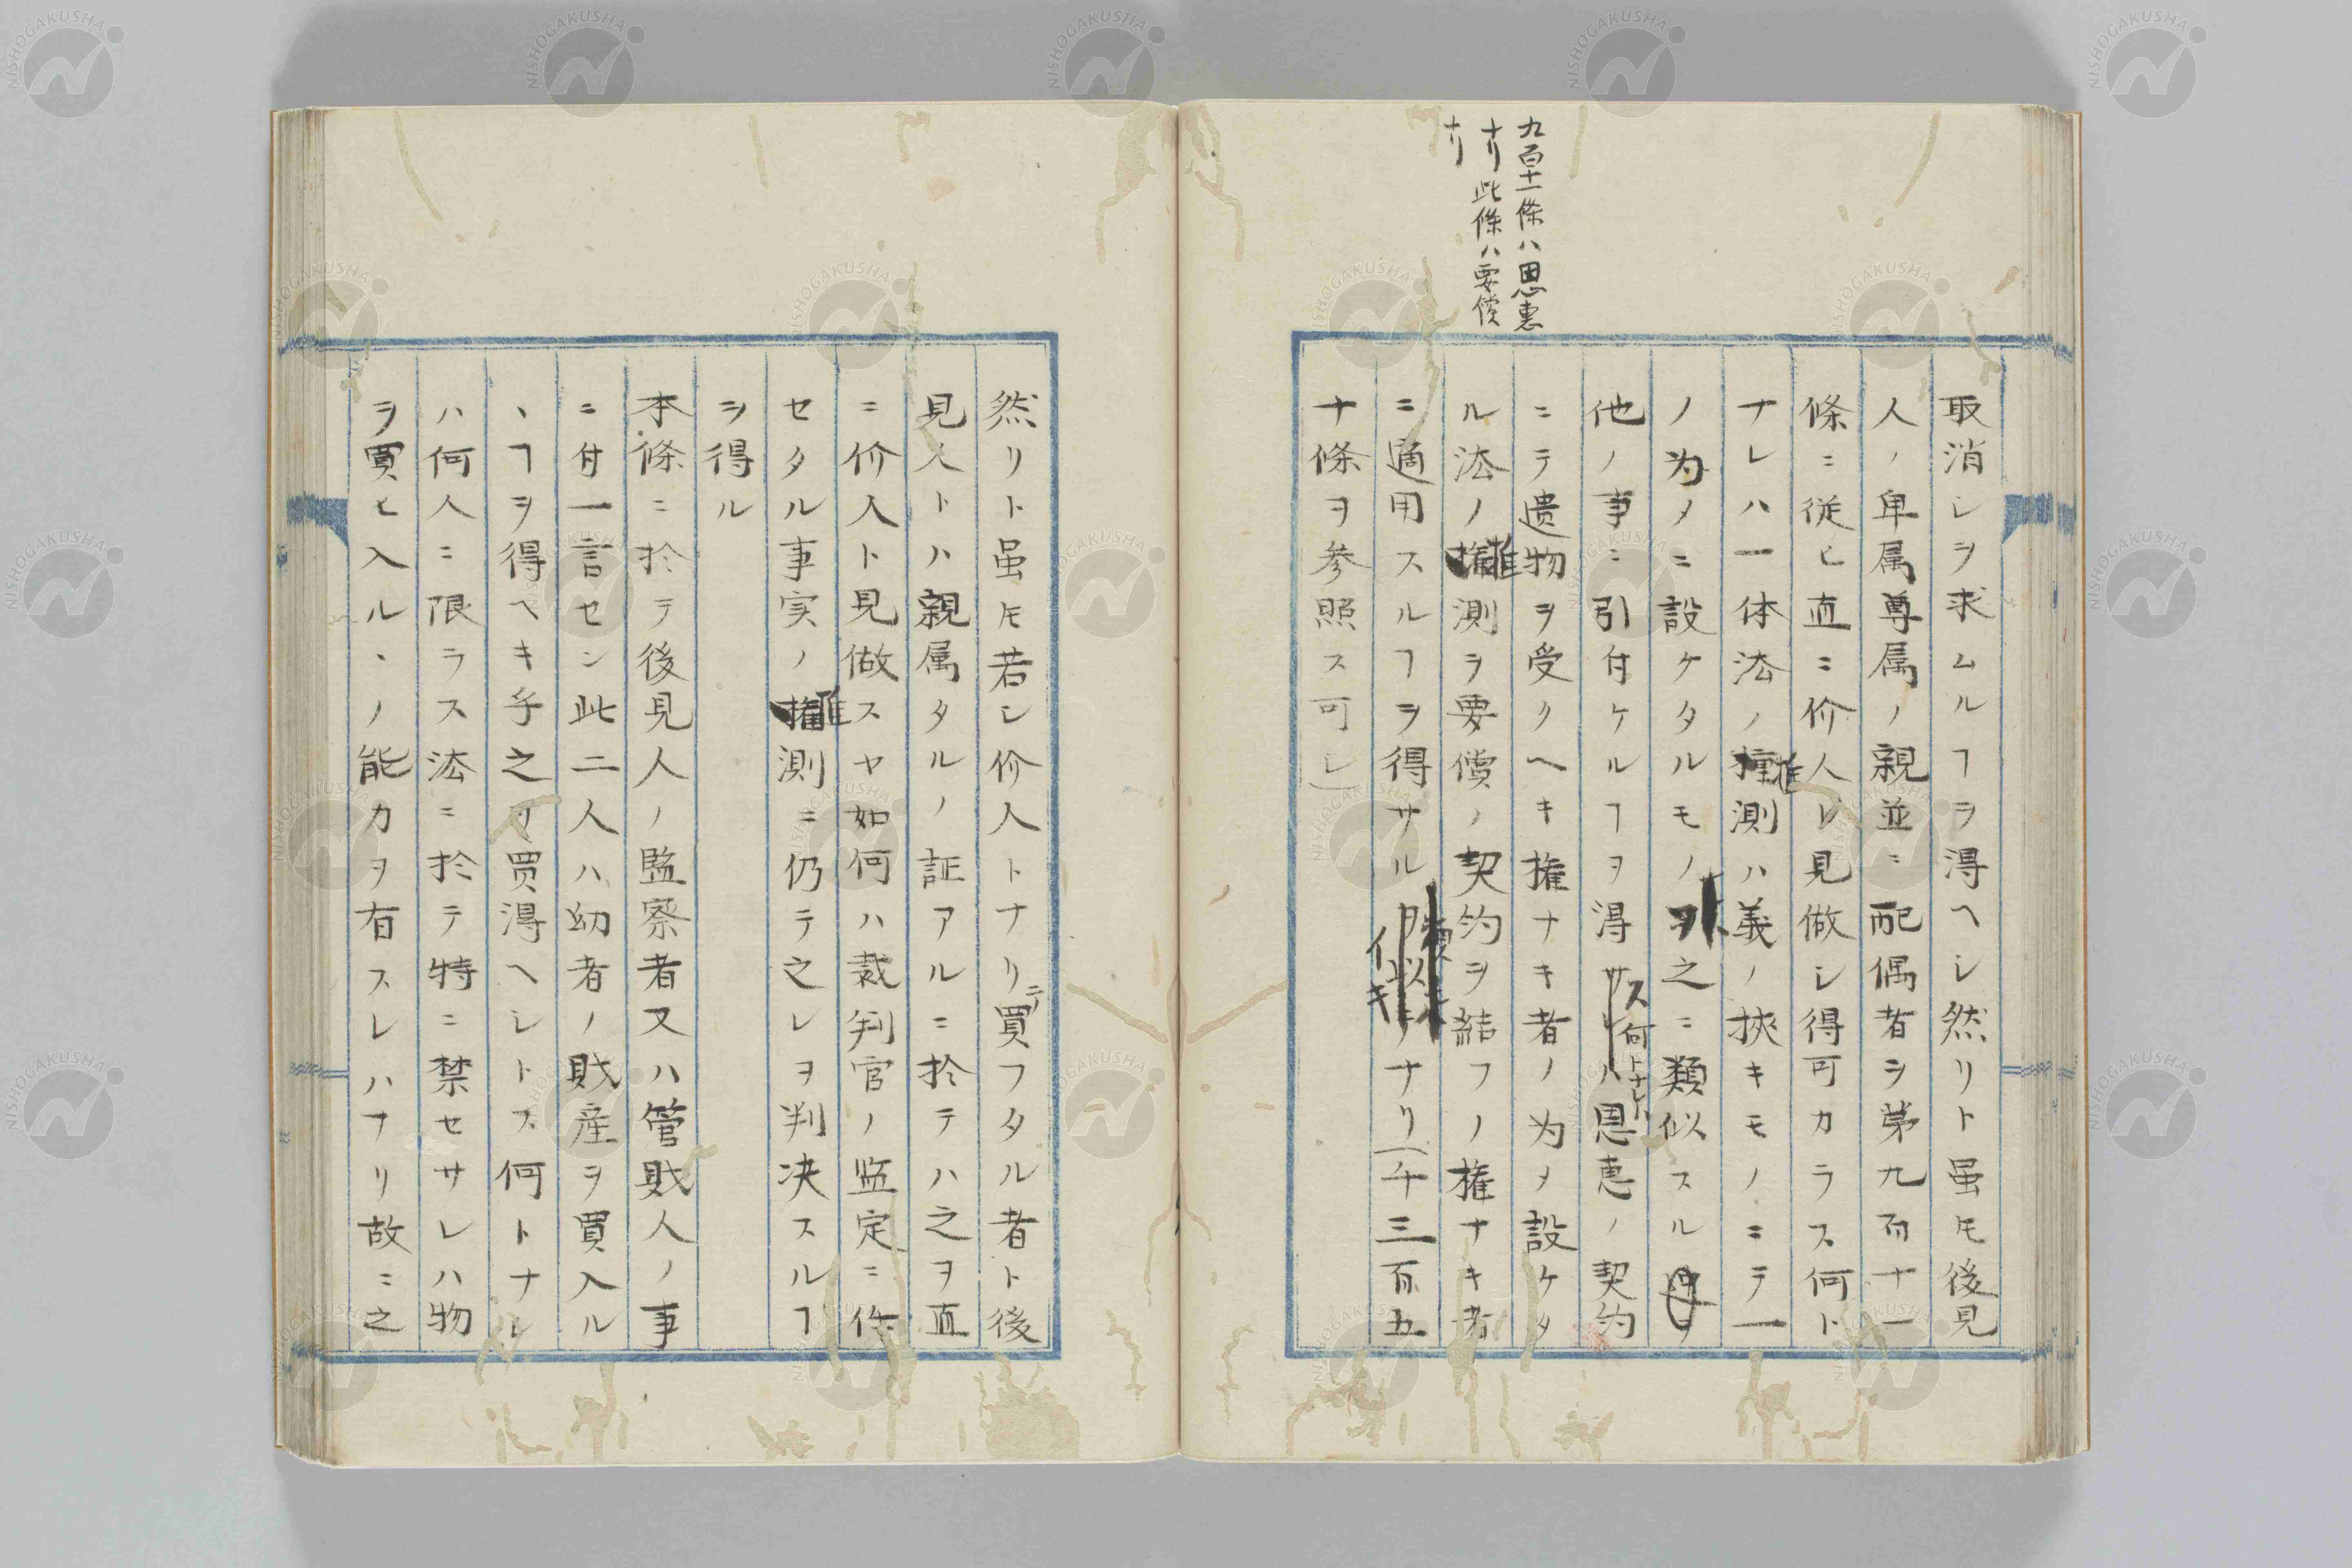 九百十一條ハ恩惠
ナリ此條ハ要償
ナリ
取消シヲ求ムルヿヲ得ヘシ然リト虽𪜈後見
人ノ卑属尊属ノ親並ニ配偶者ヲ第九百十一
條ニ従ヒ直ニ价人ト見做シ得可カラス何ト
ナレハ一体法ノ推測ハ義ノ挾キモノニテ一
ノ为メニ設ケタルモノヲ之ニ類似スル
他ノ事ニ引付ケルヿヲ得ス何トナレハ恩惠ノ契約
ニテ遺物ヲ受クヘキ権ナキ者ノ为メ設ケタ
ル法ノ推測ヲ要償ノ契約ヲ結フノ権ナキ者
ニ適用スルヿヲ得サル
ナリ(千三百五
十條ヲ参照ス可シ)
然リト虽𪜈若シ价入トナリテ買フタル者ト後
見人トハ親属タルノ証アルニ於テハ之ヲ直
ニ价入ト見做スヤ如何ハ裁判官ノ監定ニ任
セタル事実ノ推測ニ仍テ之レヲ判决スルヿ
ヲ得ル
本條ニ於テ後見人ノ監察者又ハ管財人ノ事
ニ付一言セン此二人ハ幼者ノ財産ヲ買入ル
、ヿヲ得ヘキ乎之リ買得ヘシトス何トナレ
ハ何人ニ限ラス法ニ於テ特ニ禁セサレハ物
ヲ買ヒ入ル、ノ能力ヲ有スレハナリ故ニ之
NISHOGAKUSHA